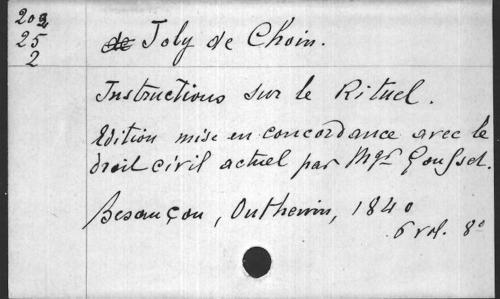 202
25
2
de Joly de Choin.
Instructions sur le Rituel.
Edition mise en concordance avec le
droit civil actuel par Mgr Gousset.
Besançon, Outhenin, 1840
6 vol. 8°